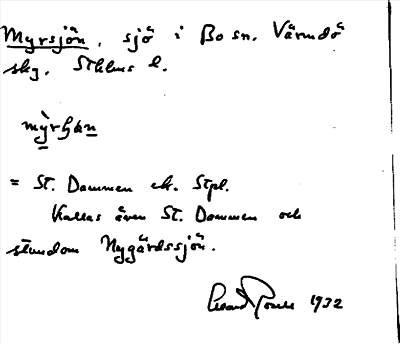 Myrsjön, sjö i Bo sn. Värmdö
skg. Sthlms l.
mỳrʃɩ̣n
= St. Dammen ek. Stpl.
Kallas även St. Dammen och
stundom Nygårdssjön.
1932